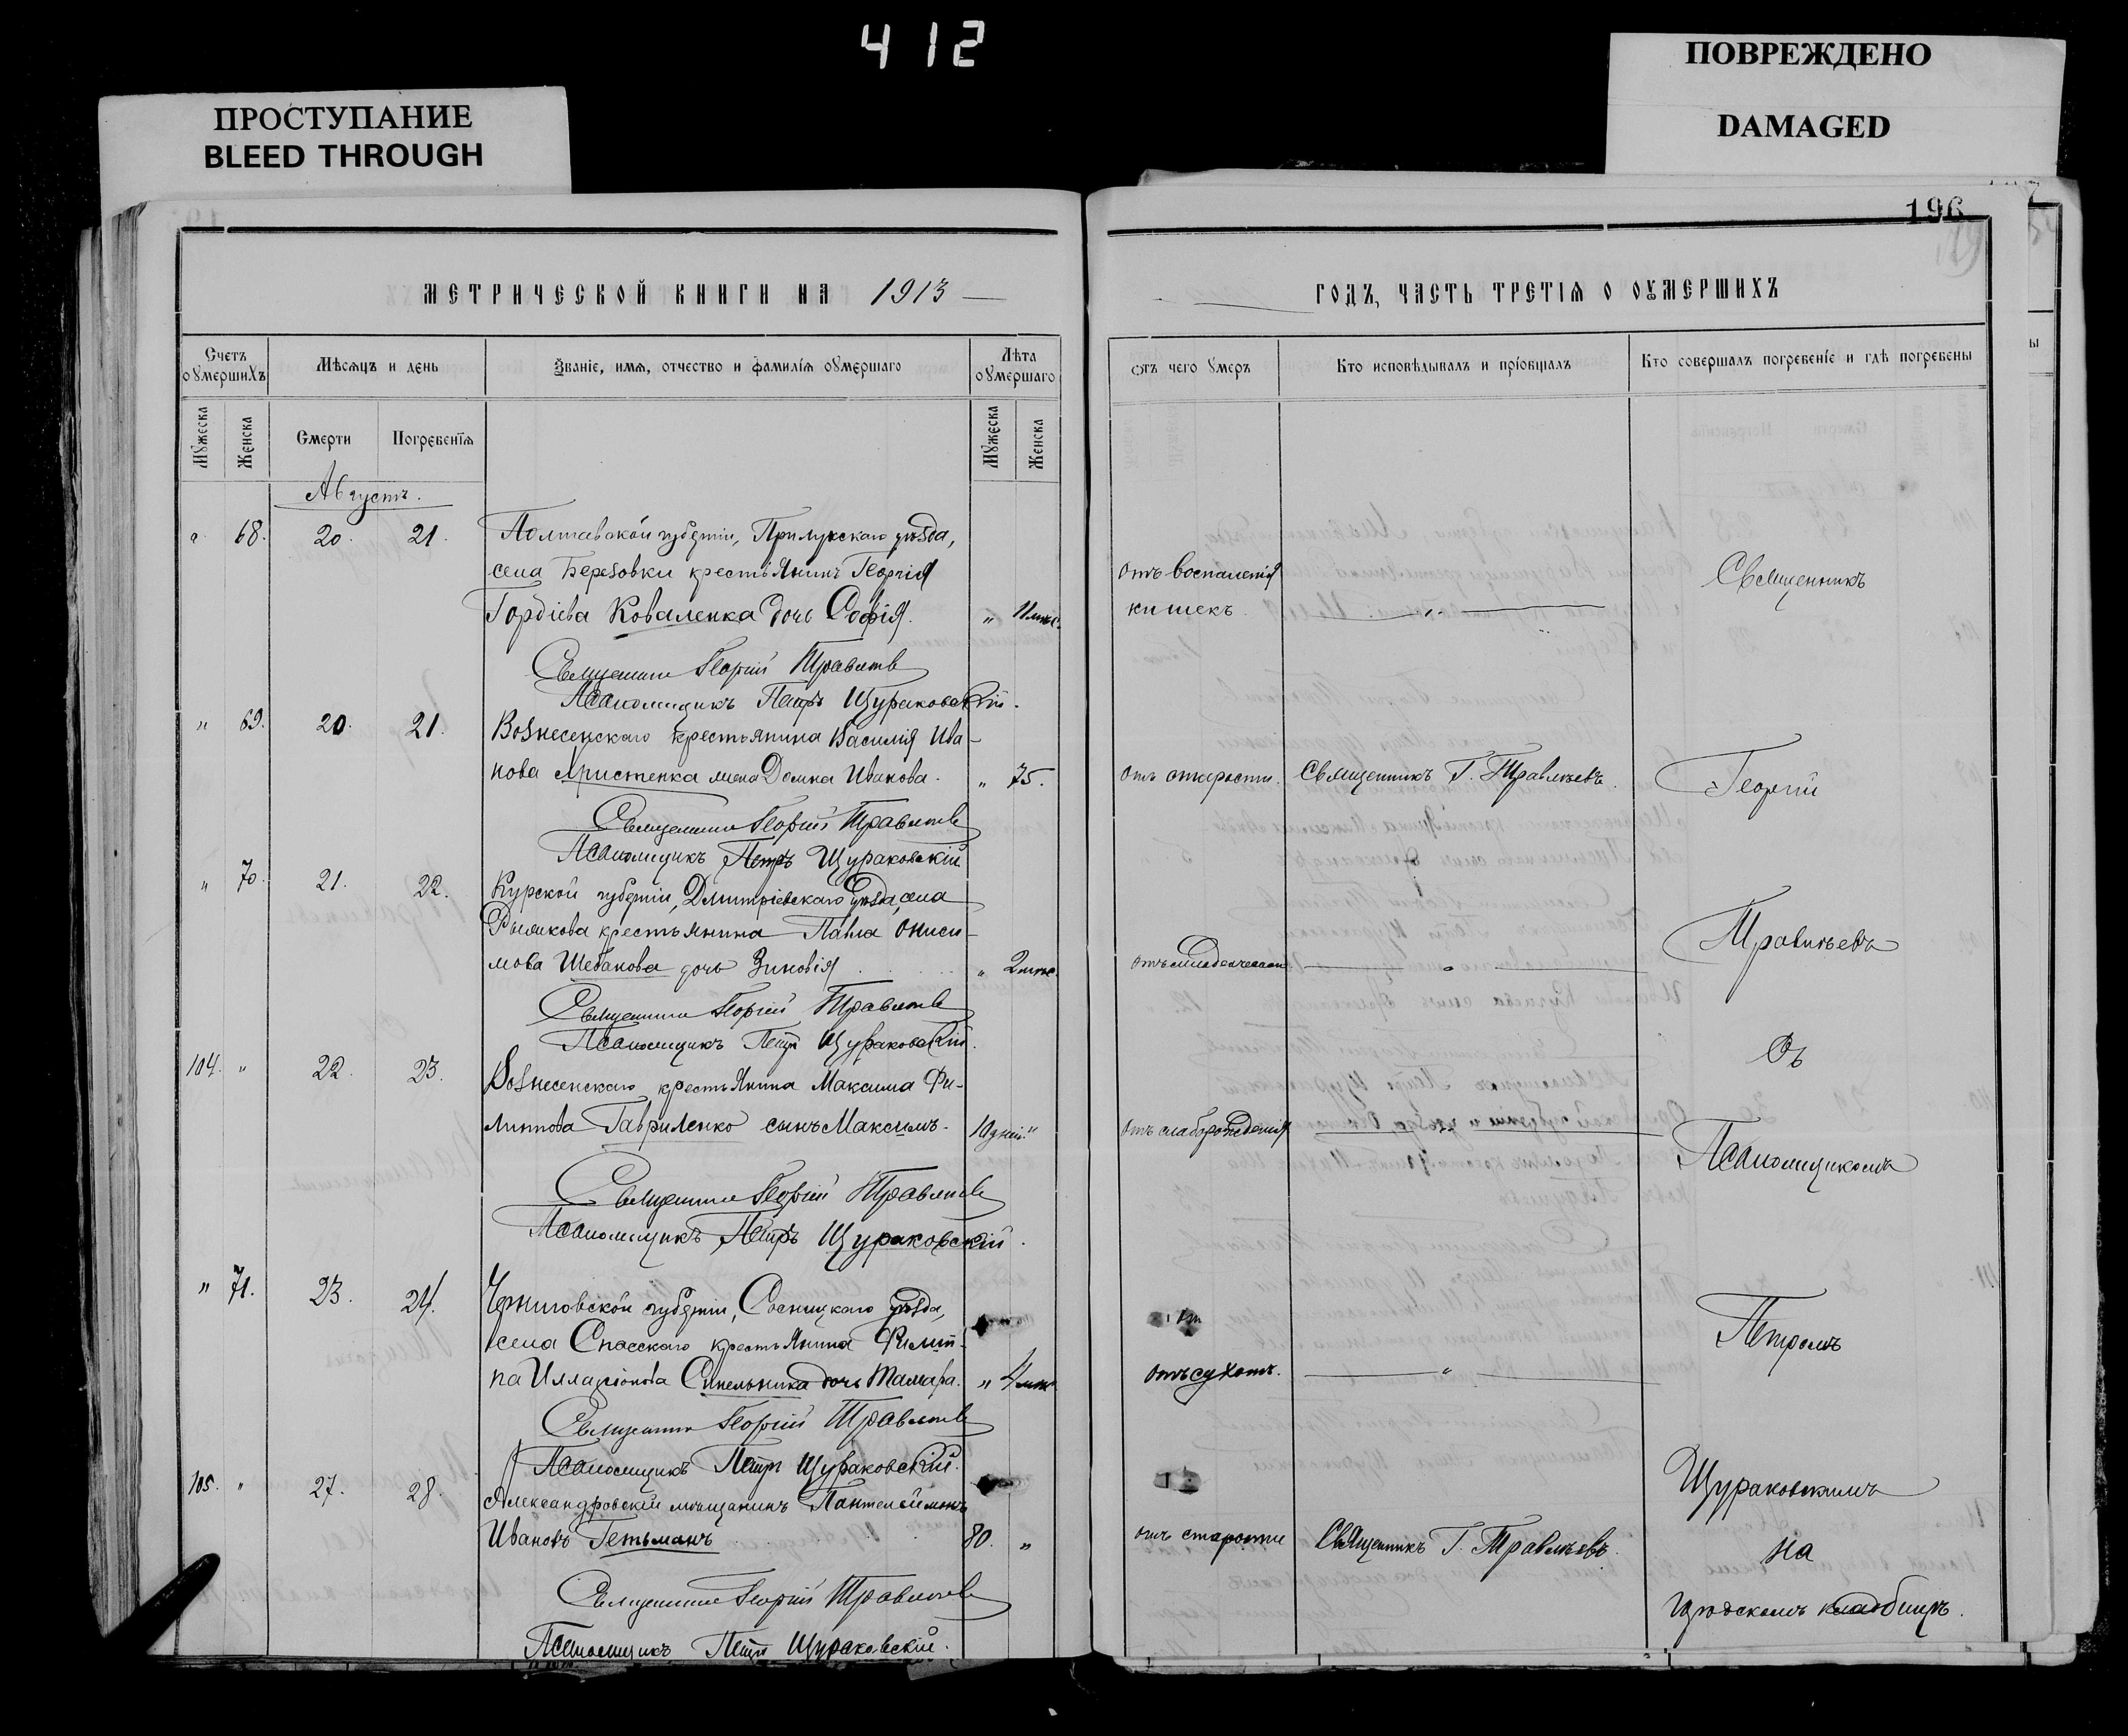 412
ПРОСТУПАНИЕ
BLEED THROUGH
ПОВРЕЖДЕНО
DAMAGED
196
МЕТРИЧЕСКОЙ КНИГИ НА 1913
Счетъ оумершихъ
Мѣсяцъ и день
Званіе, имя, отчество и фамилія оумершаго
Лѣта оумершаго
Мужеска
Женска
Смерти
Погребенія
Мужеска
Женска
Августъ.
68. 20. 21. Полтавской губерніи, Прилукскаго уѣзда,
села Березовки крестьянина Георгія
Гордіева Коваленка дочь Софія. " 11 мѣс.
Священникъ Георгій Травлѣевъ
Псаломщикъ Петръ Щураковскій.
" 69. 20. 21. Вознесенскаго крестьянина Василія Ива-
нова Христенка жена Домна Иванова. " 75.
Священникъ Георгій Травлѣевъ
Псаломщикъ Петръ Щураковскій
" 70. 21. 22. Курской губерніи, Дмитріевскаго уѣзда, села
крестьянина ПавлаОниси-
мова Шебанова дочь Зиновія " 2 мѣс.
Священникъ Георгій Травлѣевъ
Псаломщикъ Петръ Щураковскій.
104. " 22. 23. Вознесенскаго крестьянина Максима Фи-
липпова Гавриленко сынъ Максимъ. 10 дней. "
Священникъ Георгій Травлѣевъ
Псаломщикъ Петръ Щураковскій.
" 71. 23. 24. Черниговской губерніи, Сосницкаго уѣзда,
села Спасскаго крестьянина Филип-
па Илларіонова Синельника дочь Тамара. " 4 мѣс.
Священникъ Георгій Травлѣевъ
Псаломщикъ Петръ Щураковскій.
105. " 27. 28. Александровскій мѣщанинъ Пантелеймонъ
Ивановъ Гетьманъ 80. "
Священникъ Георгій Травлѣевъ
Псаломщикъ Петръ Щураковскій.
ГОДЪ, ЧАСТЬ ТРЕТІЯ О ОУМЕРШИХЪ
Отъ чего умеръ
Кто исповѣдывалъ и пріобщалъ
Кто совершалъ погребеніе и гдѣ погребены
отъ воспаленія
кишекъ. "
Священникъ
отъ старости. Священникъ Г. Травлѣевъ.
Георгій
Травлѣевъ
отъ младенческой. "
Съ
отъ слаборожденія "
Псаломщикомъ
Петромъ
отъ сухотъ. "
Щураковскимъ
отъ старости Священникъ Г. Травлѣевъ.
на
городскомъ кладбищѣ.
ы